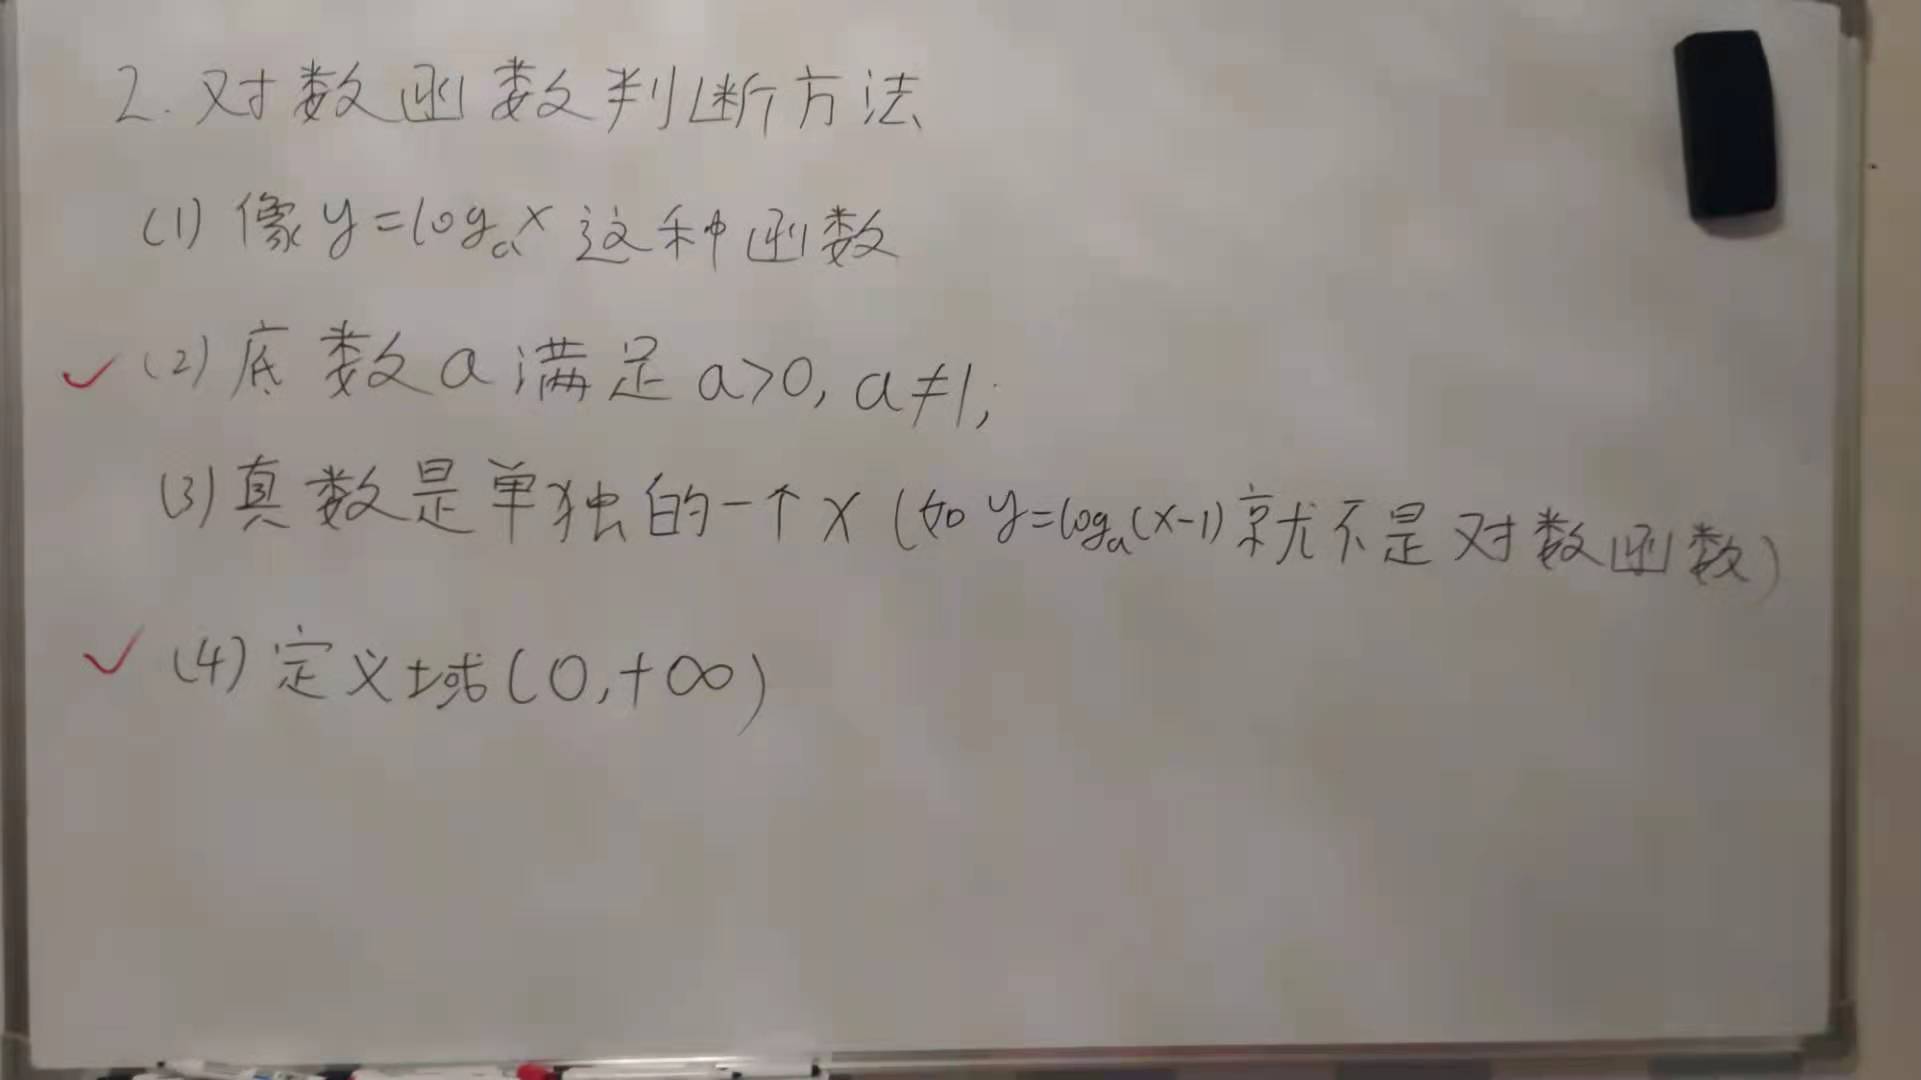 2. 对数函数判断方法
(1) 像 y=logₐx 这种函数
✓ (2) 底数a满足 a>0, a≠1;
(3) 真数是单独的一个x (如 y=logₐ(x-1) 就不是对数函数)
✓ (4) 定义域(0,+∞)